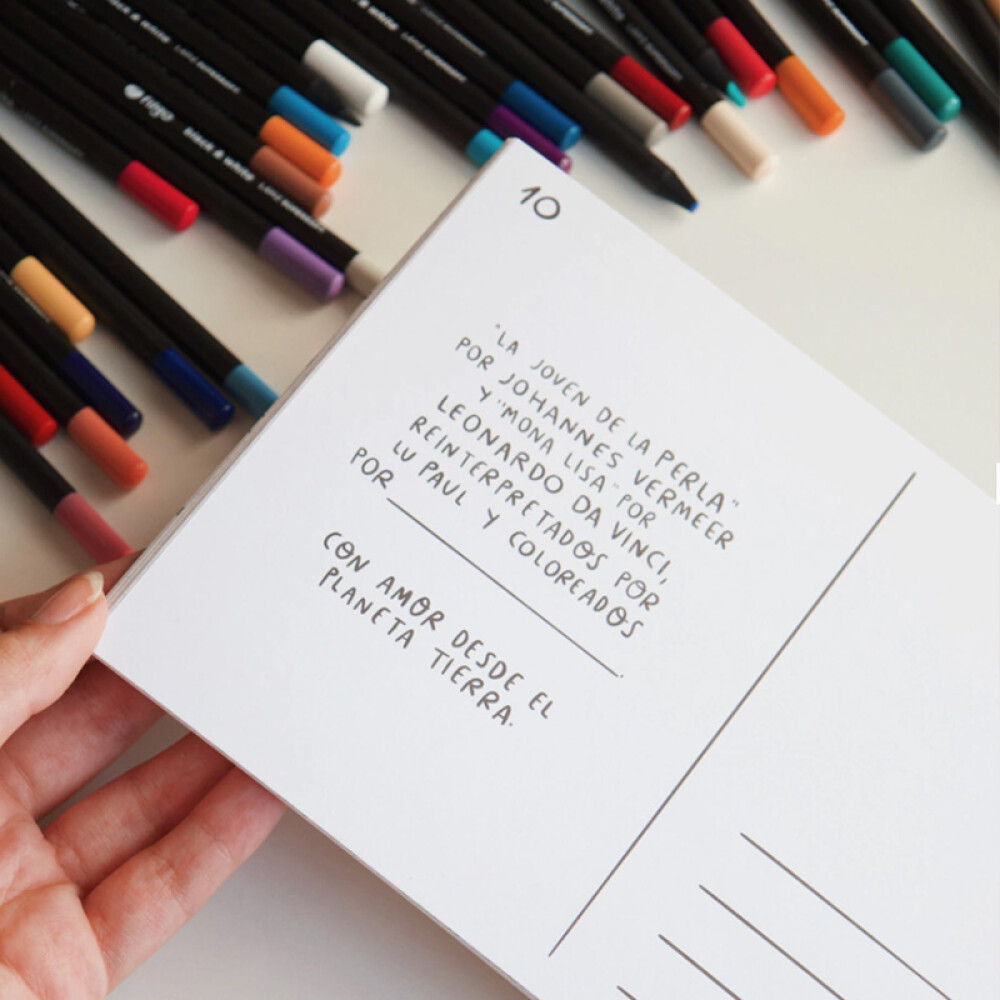 10
"LA JOVEN DE LA PERLA"
POR JOHANNES VERMEER
Y "MONA LISA" POR
LEONARDO DA VINCI,
REINTERPRETADOS POR
LU PAUL Y COLOREADOS
POR
CON AMOR DESDE EL
PLANETA TIERRA.
filgo
black & white